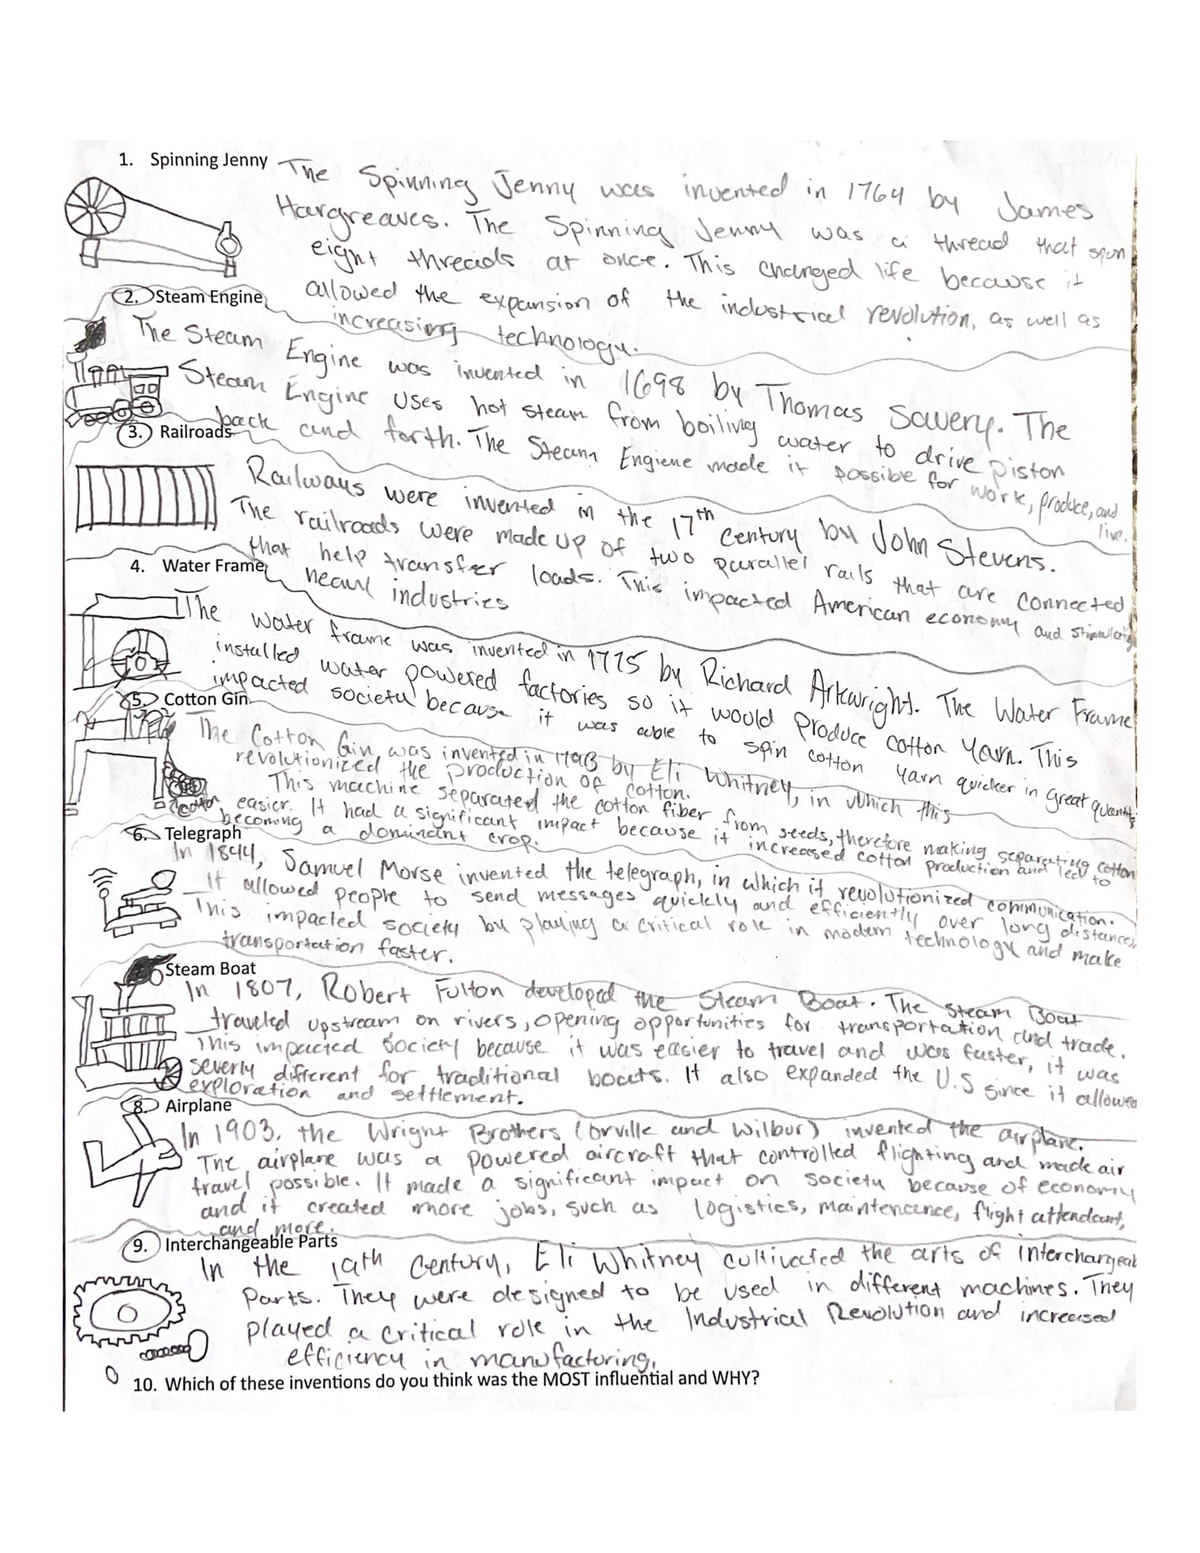 1. Spinning Jenny
The Spinning Jenny was invented in 1764 by James
Hargreaves. The Spinning Jenny was a thread that spun
eight threads at once. This changed life because it
allowed the expansion of the industrial revolution, as well as
increasing technology.
2. Steam Engine
The Steam Engine was invented in 1698 by Thomas Savery. The
Steam Engine uses hot steam from boiling water to drive piston
back and forth. The Steam Engiene made it possible for work, produce, and
live.
3. Railroads
Railways were invented in the 17th Century by John Stevens.
The railroads were made up of two parallel rails that are connected
that help transfer loads. This impacted American economy and stimulating
heavy industries
4. Water Frame
The water frame was invented in 1775 by Richard Arkwright. The Water Frame
installed water powered factories so it would produce cotton yarn. This
impacted society because it was able to spin cotton yarn quicker in great quantity
5. Cotton Gin
The Cotton Gin was invented in 1793 by Eli Whitney, in which this
revolutionized the production of cotton.
This machine separated the cotton fiber from seeds, therefore making separating cotton
easier. It had a significant impact because it increased cotton production and led to
becoming a dominant crop.
cotton
6. Telegraph
In 1844, Samuel Morse invented the telegraph, in which it revolutionized communication.
It allowed people to send messages quickly and efficiently over long distances
This impacted society by playing a critical role in modern technology and make
transportation faster.
Steam Boat
In 1807, Robert Fulton developed the Steam Boat. The steam Boat
traveled upstream on rivers, opening opportunities for transportation and trade.
This impacted Society because it was easier to travel and was faster, it was
severly different for traditional boats. It also expanded the U.S since it allowed
exploration and settlement.
8. Airplane
In 1903, the Wright Brothers (orville and Wilbur) invented the airplane.
The airplane was a powered aircraft that controlled flighting and made air
travel possible. It made a significant impact on society because of economy
and it created more jobs, such as logistics, maintenence, flight attendant,
and more.
9. Interchangeable Parts
In the 19th Century, Eli Whitney cultivated the arts of interchangeab
Parts. They were designed to be used in different machines. They
played a critical role in the Industrial Revolution and increased
efficiency in manufactoring.
10. Which of these inventions do you think was the MOST influential and WHY?